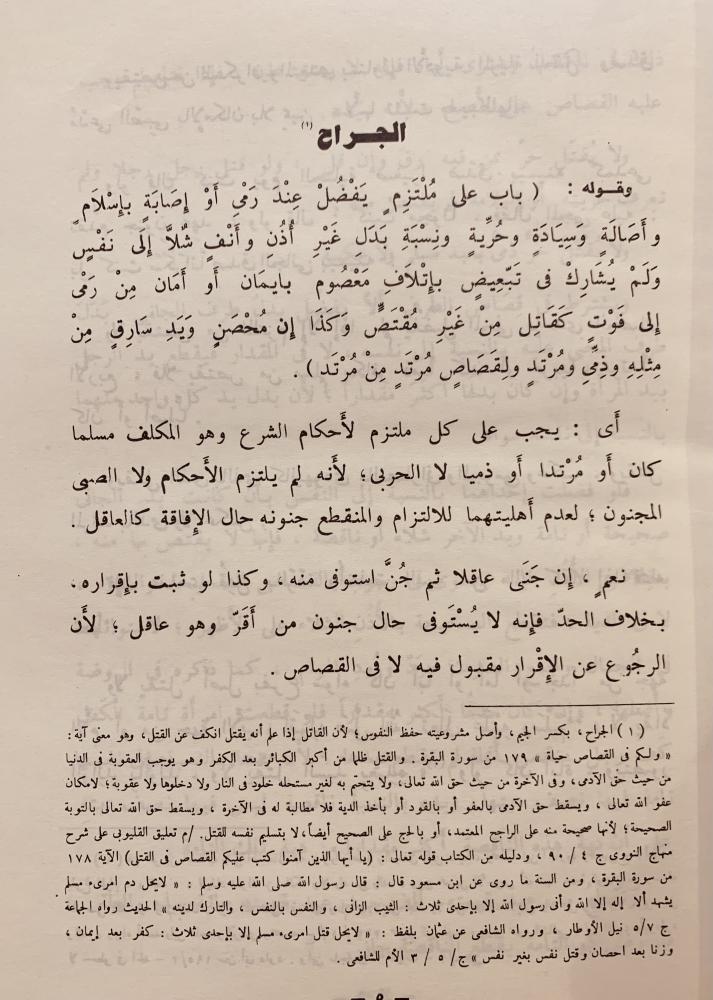 الجراح (١)
وقوله : ( باب على مُلْتَزِمٍ يَفْضُلْ عِنْدَ رَمْىٍ أَوْ إِصَابَةٍ بِإِسْلَامٍ
وأَصَالَةٍ وَسِيَادَةٍ وحُرِّيةٍ ونِسْبَةِ بَدَلِ غَيْرِ أُذُنٍ وأَنْفٍ شُلَّا إِلَى نَفْسٍ
وَلَمْ يُشَارِكْ فى تَبْعِيضٍ بِإِتْلَافِ مَعْصُومٍ بايمَان أَو أَمَان مِنْ رَمْىٍ
إلى فَوْتٍ كَقَاتِلٍ مِنْ غَيْرِ مُقْتَصٍّ وَكَذَا إِن مُحْصَنٍ وَيَدِ سَارِقٍ مِنْ
مِثْلِهِ وذِمِّىٍ ومُرْتَدٍ ولِقَصَاصٍ مُرْتَد مِنْ مُرْتَد ) .
أَى : يجب على كل ملتزم لأَحكام الشرع وهو المكلف مسلما
كان أَو مُرْتدا أَو ذميا لا الحربى ؛ لأَنه لم يلتزم الأَحكام ولا الصبى
المجنون ؛ لعدم أَهليتهما للالتزام والمنقطع جنونه حال الإِفاقة كالعاقل .
نعم ، إِن جَنَى عاقلا ثم جُنَّ استوفى منه ، وكذا لو ثبت بإِقراره ،
بخلاف الحدّ فإِنه لا يُسْتَوفى حال جنون من أَقَرّ وهو عاقل ؛ لأَن
الرجُوع عن الإِقْرار مقبول فيه لا فى القصاص .
( ١ ) الجراح ، بكسر الجيم ، وأصل مشروعيته حفظ النفوس ؛ لأن القاتل إذا علم أنه يقتل انكف عن القتل ، وهو معنى آية :
« ولكم فى القصاص حياة » ١٧٩ من سورة البقرة . والقتل ظلما من أكبر الكبائر بعد الكفر وهو يوجب العقوبة فى الدنيا
من حيث حق الآدمى ، وفى الآخرة من حيث حق الله تعالى ، ولا يتحتم به لغير مستحله خلود فى النار ولا دخولها ولا عقوبة ؛ لامكان
عفو الله تعالى ، ويسقط حق الآدمى بالعفو أو بالقود أو بأخذ الدية فلا مطالبة له فى الآخرة ، ويسقط حق الله تعالى بالتوبة
الصحيحة ؛ لأنها صحيحة منه على الراجح المعتمد ، أو بالحج على الصحيح أيضاً ، لا بتسليم نفسه للقتل . /م تعليق القليوبى على شرح
منهاج النووى ج ٤ / ٩٠ ، ودليله من الكتاب قوله تعالى : (يا أيها الذين آمنوا كتب عليكم القصاص فى القتلى) الآية ١٧٨
من سورة البقرة ، ومن السنة ما روى عن ابن مسعود قال : قال رسول الله صلى الله عليه وسلم : « لايحل دم امرىء مسلم
يشهد ألا إله إلا الله وأنى رسول الله إلا بإحدى ثلاث : الثيب الزانى ، والنفس بالنفس ، والتارك لدينه » الحديث رواه الجماعة
ج ٥/٧ نيل الأوطار ، ورواه الشافعى عن عثمان بلفظ : « لايحل قتل امرىء مسلم إلا بإحدى ثلاث : كفر بعد إيمان ،
وزنا بعد احصان وقتل نفس بغير نفس » ج/ ٥ / ٣ الأم للشافعى .